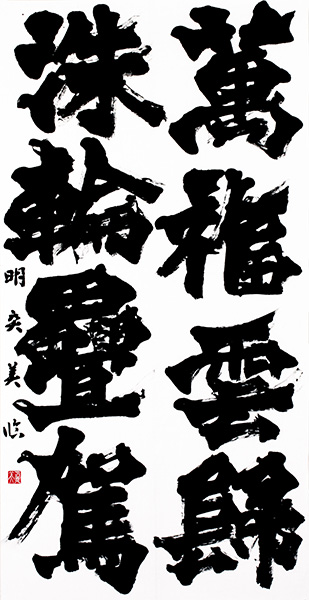 萬福雲歸
珠輪疊駕
明奕美臨